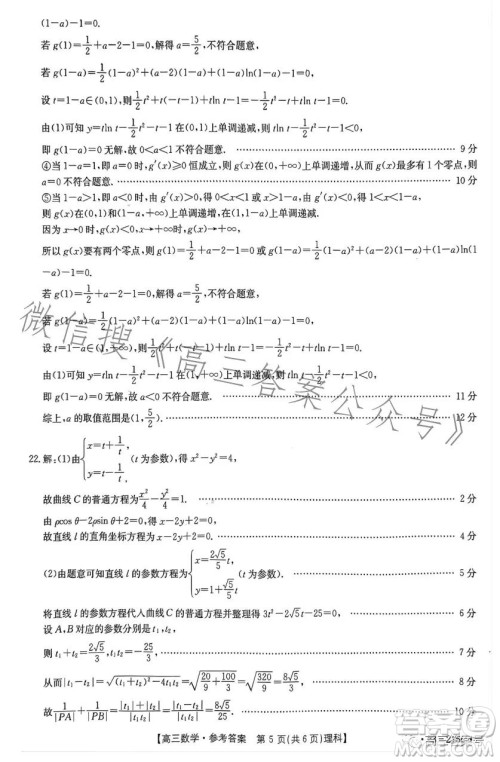 (1-a)-1=0.
若 g(1)=1/2+a-2-1=0,解得 a=5/2,不符合题意.
若 g(1-a)=1/2(1-a)²+(a-2)(1-a)+(1-a)ln(1-a)-1=0,
设 t=1-a∈(0,1),则g(1-a)=1/2t²+t(-t-1)+tln t-1=tln t-1/2t²-t-1.
由(1)可知 y=tln t-1/2t²-t-1在(0,1)上单调递减,则 tln t-1/2t²-t-1<0,
即 g(1-a)=0 无解,故 0<a<1 不符合题意. 9 分
④当 1-a=1,即 a=0 时,g'(x)≥0 恒成立,则 g(x)在(0,+∞)上单调递增,从而 g(x)最多有 1 个零点,则 a=0 不符合题意. 10 分
⑤当 1-a>1,即 a<0 时,由 g'(x)>0,得 0<x<1 或 x>1-a,由 g'(x)<0,得 1<x<1-a,
则 g(x)在(0,1)和(1-a,+∞)上单调递增,在(1,1-a)上单调递减.
因为 x→0 时,g(x)→-∞,当 x→+∞时,g(x)→+∞,
所以 g(x)要有两个零点,则 g(1)=1/2+a-2-1=0 或 g(1-a)=1/2(1-a)²+(a-2)(1-a)+(1-a)ln(1-a)-1=0.
若 g(1)=1/2+a-2-1=0,解得 a=5/2,不符合题意.
若 g(1-a)=1/2(1-a)²+(a-2)(1-a)+(1-a)ln(1-a)-1=0,
设 t=1-a∈(1,+∞),则 g(1-a)=1/2t²+t(-t-1)+tln t-1=tln t-1/2t²-t-1.
由(1)可知 y=tln t-1/2t²-t-1在(1,+∞)上单调递减,则 tln t-1/2t²-t-1<0,
即 g(1-a)=0 无解,故 a<0 不符合题意.
综上,a 的取值范围是(1,5/2). 12 分
22.解:(1)由{x=t+1/t, y=t-1/t (t 为参数),得 x²-y²=4,
故曲线 C 的普通方程为x²/4-y²/4=1. 2 分
由 ρcos θ-2ρsin θ+2=0,得 x-2y+2=0,
故直线 l 的直角坐标方程为 x-2y+2=0. 4 分
(2)由题意可知直线 l 的参数方程为{x=2√5/5t, y=1+√5/5t (t 为参数), 5 分
将直线 l 的参数方程代入曲线 C 的普通方程并整理得 3t²-2√5t-25=0, 6 分
设 A,B 对应的参数分别是 t₁,t₂,
则 t₁+t₂=2√5/3,t₁t₂=-25/3, 7 分
从而|t₁-t₂|=√((t₁+t₂)²-4t₁t₂)=√(20/9+100/3)=√(320/9)=8√5/3, 8 分
故1/|PA|+1/|PB|=|t₁-t₂|/|t₁t₂|=8√5/3/25/3=8√5/25. 10 分
【高三数学·参考答案 第 5 页(共 6 页)理科】
微信搜《高三答案公众号》
答案圈